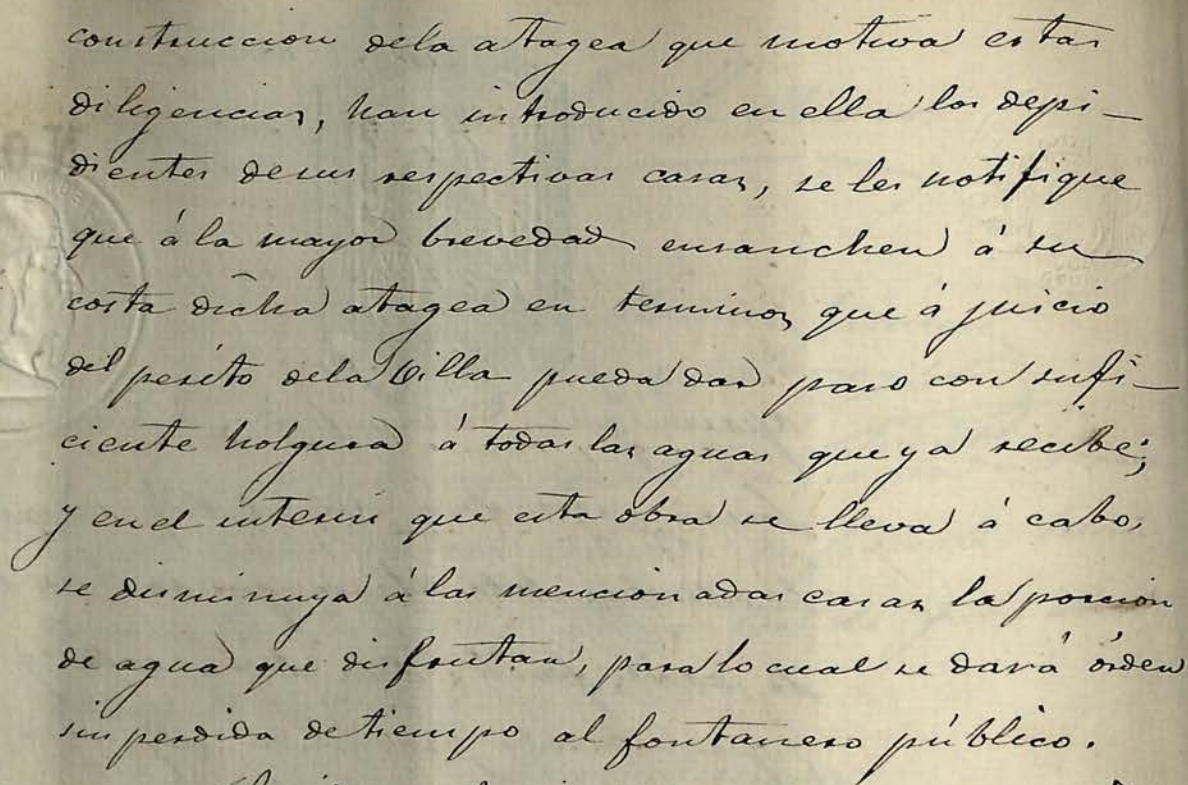 construccion dela atagea que motiva estas
diligencias, han introducido en ella los depi-
dientes desus respectivas casas, se les notifique
que á la mayor brevedad ensanchen á su
costa dicha atagea en terminos que á juicio
del perito dela Villa pueda dar paso con sufi-
ciente holgura á todas las aguas que ya recibe;
y en el interin que esta obra se lleva á cabo,
se disminuya á las mencionadas casas la porcion
de agua que disfrutan, para lo cual se dará órden
sin perdida de tiempo al fontanero público.